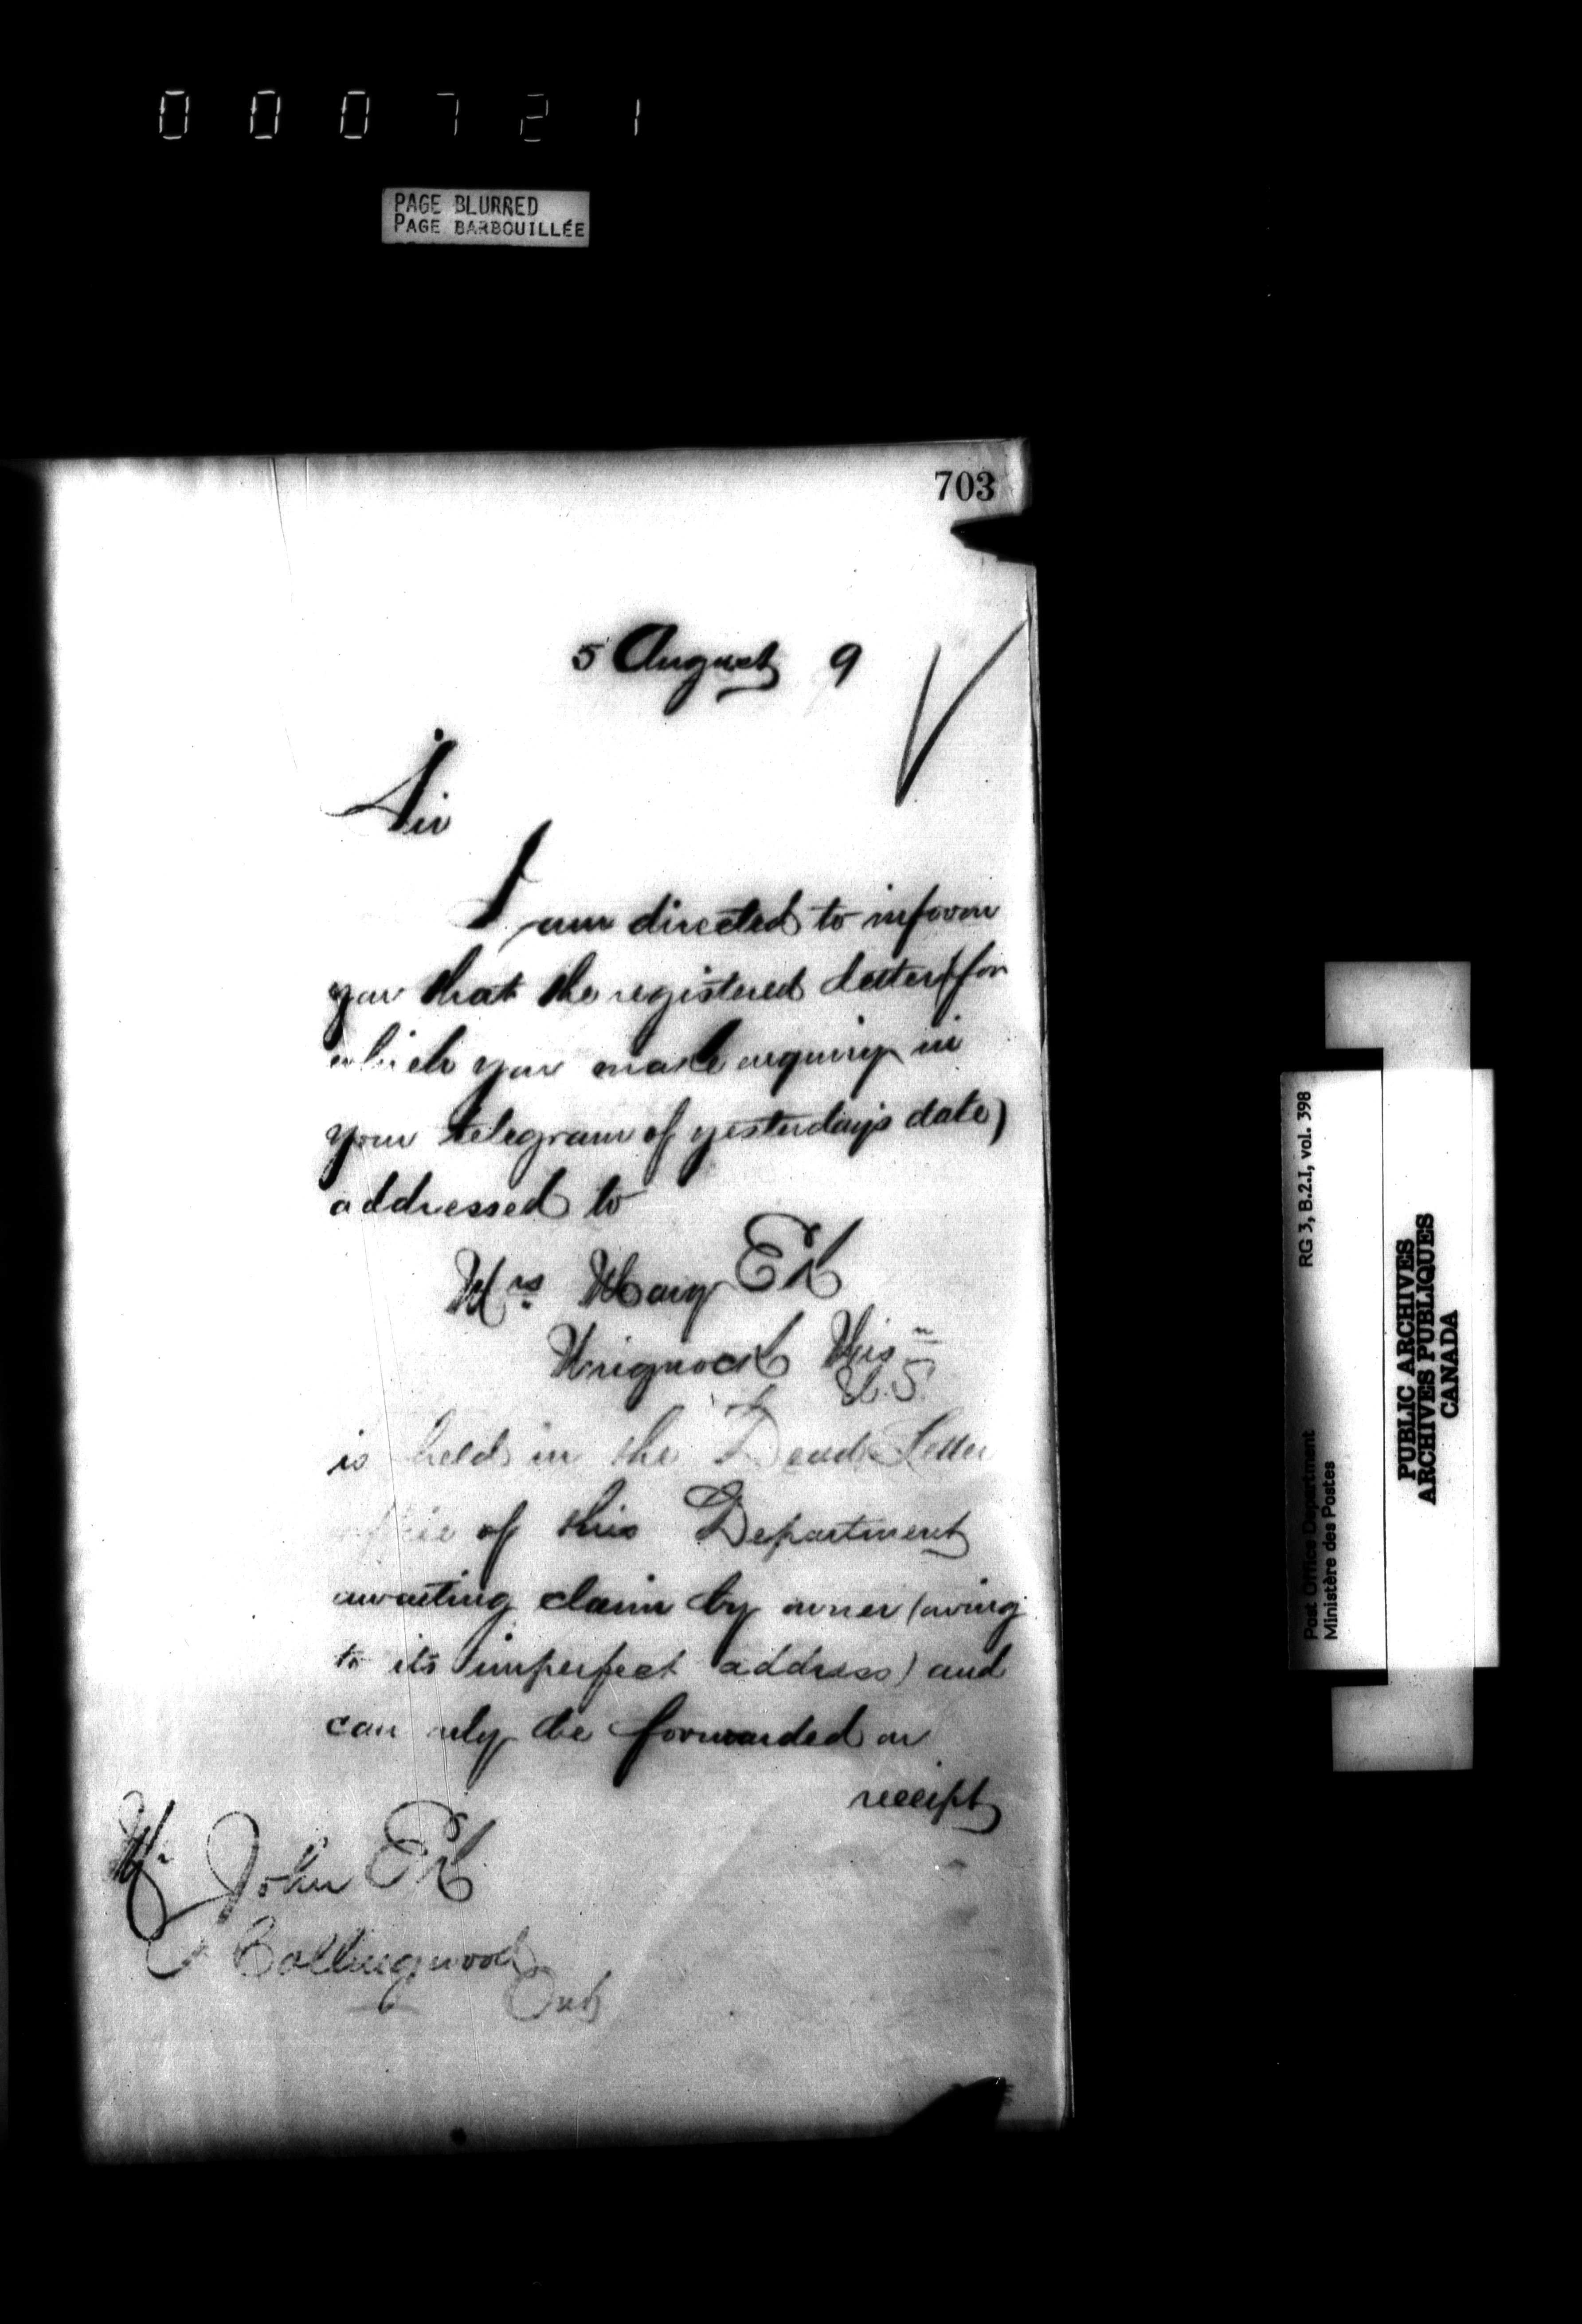 000721
PAGE BLURRED
PAGE BARBOUILLÉE
703
5 August 9
Sir
I am directed to inform
you that the registered letter (for
which you make enquiry in
your telegram of yesterday's date)
addressed to
Mrs. Mary Ek
Wis
U.S.
is held in the Dead Letter
office of this Department
awaiting claim by owner (owing
to its imperfect address) and
can only be forwarded on
receipt
Mr John Ek
Collingwood
Ont
Post Office Department RG 3, B.2.1, vol. 398
Ministère des Postes
PUBLIC ARCHIVES
ARCHIVES PUBLIQUES
CANADA